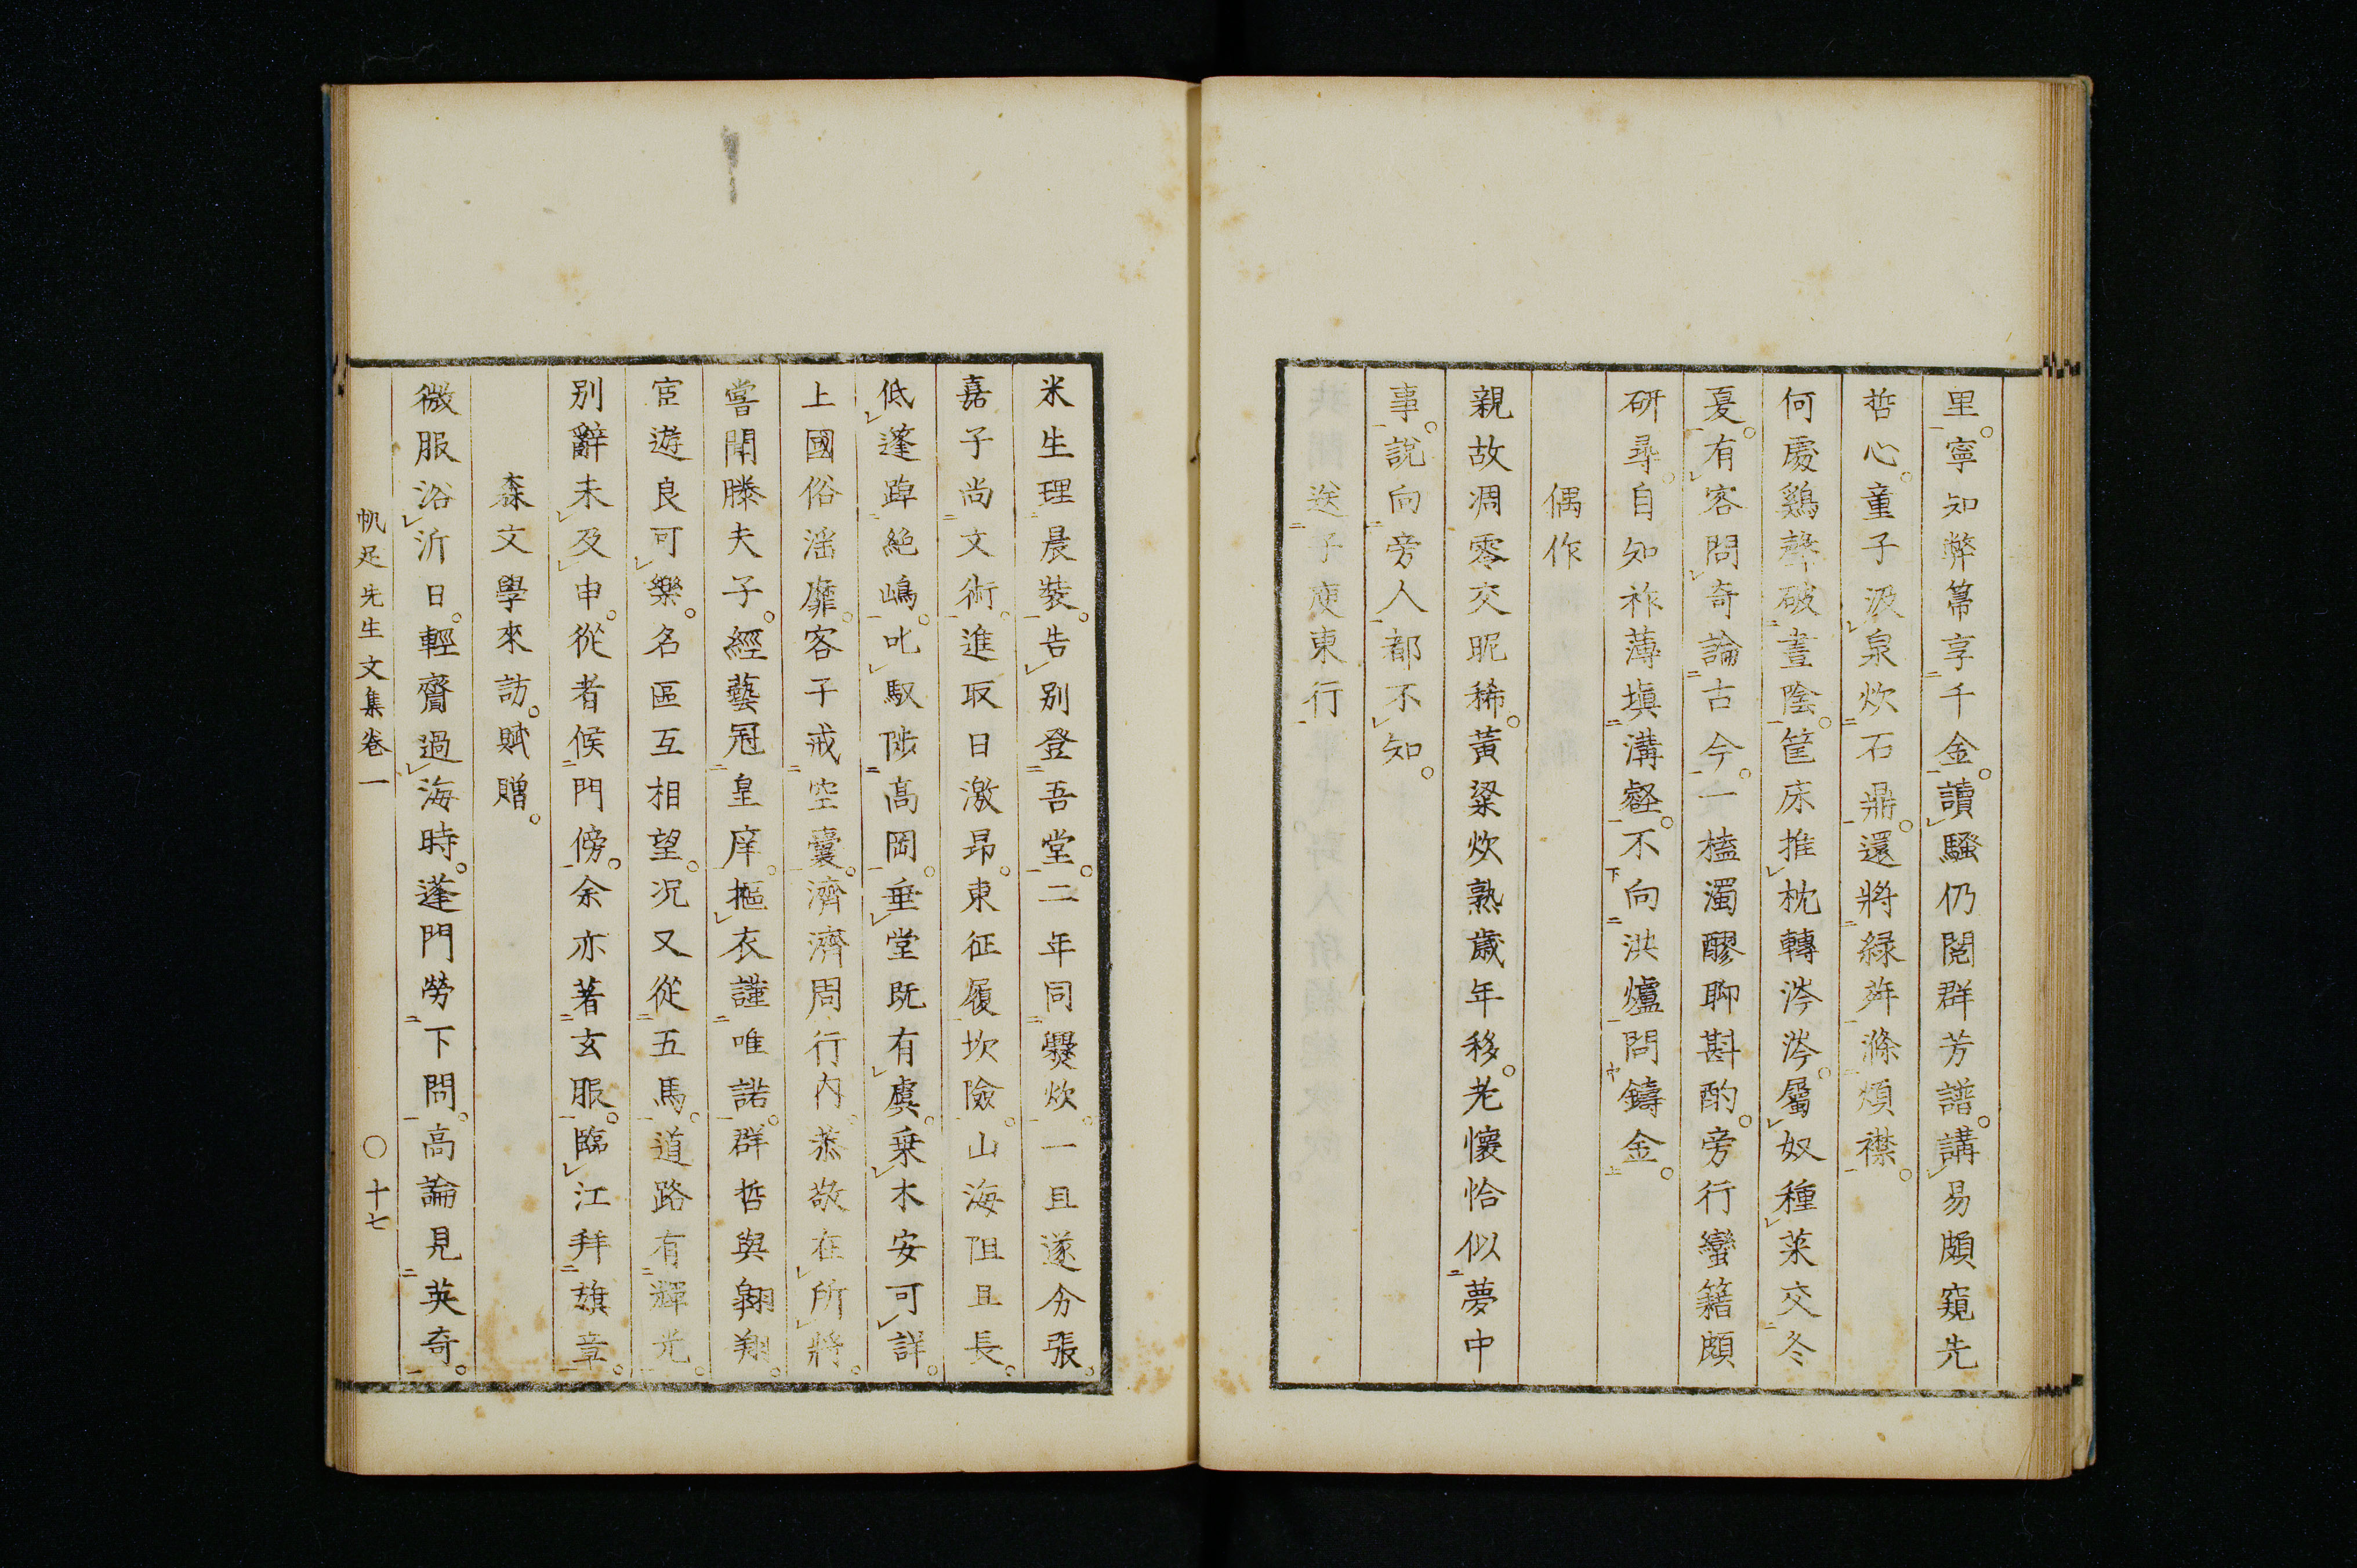 里。寧知弊箒享千金。讀騷仍閲群芳譜。講易頗窺先
哲心。童子汲泉炊石鼎。還將緑荈滌煩襟。
何處鷄聲破晝陰。筐床推枕轉涔涔。屬奴種菜交冬
夏。有客問奇論古今。一榼濁醪聊斟酌。旁行蠻籍頗
研尋。自知祚薄塡溝壑。不向洪爐問鑄金。
偶作
親故凋零交昵稀。黃粱炊熟歲年移。老懷恰似夢中
事。說向旁人都不知。
送子庾東行
米生理晨裝。告別登吾堂。二年同爨炊。一旦遂分張。
嘉子尚文術。進取日激昂。東征履坎險。山海阻且長。
低蓬踔絶嶋。叱馭陟高岡。垂堂旣有虞。乗木安可詳。
上國俗滛靡。客子戒空囊。濟濟周行內。恭敬在所將。
嘗聞滕夫子。經藝冠皇庠。摳衣謹唯諾。群哲與翱翔。
宦遊良可樂。名區互相望。況又從五馬。道路有輝光。
別辭未及申。從者候門傍。余亦著玄服。臨江拜旗章。
森文學來訪。賦贈。
微服浴沂日。輕齎過海時。蓬門勞下問。高論見英奇。
帆足先生文集卷一 〇十七